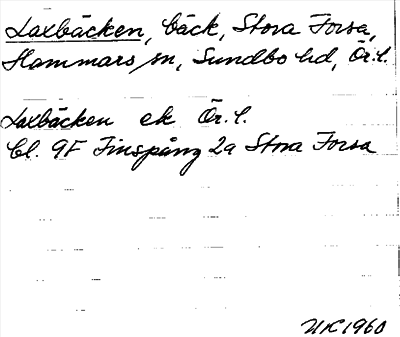 Laxbäcken, bäck, Stora Forsa,
Hammars sn, Sundbo hd, Ör. l.
Laxbäcken ek Ör. l.
bl. 9F Finspång 2a Stora Forsa
NK 1960